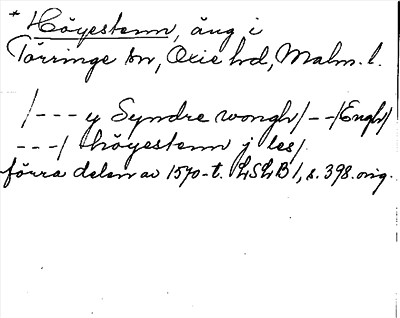 * Höyestenn, äng i
Törringe sn, Oxie hd, Malm. l.
/--- y Syndre wongh/--/Engh/
---/ höyestenn j les/
förra delen av 1570-t. LSLB 1, s. 398. orig.